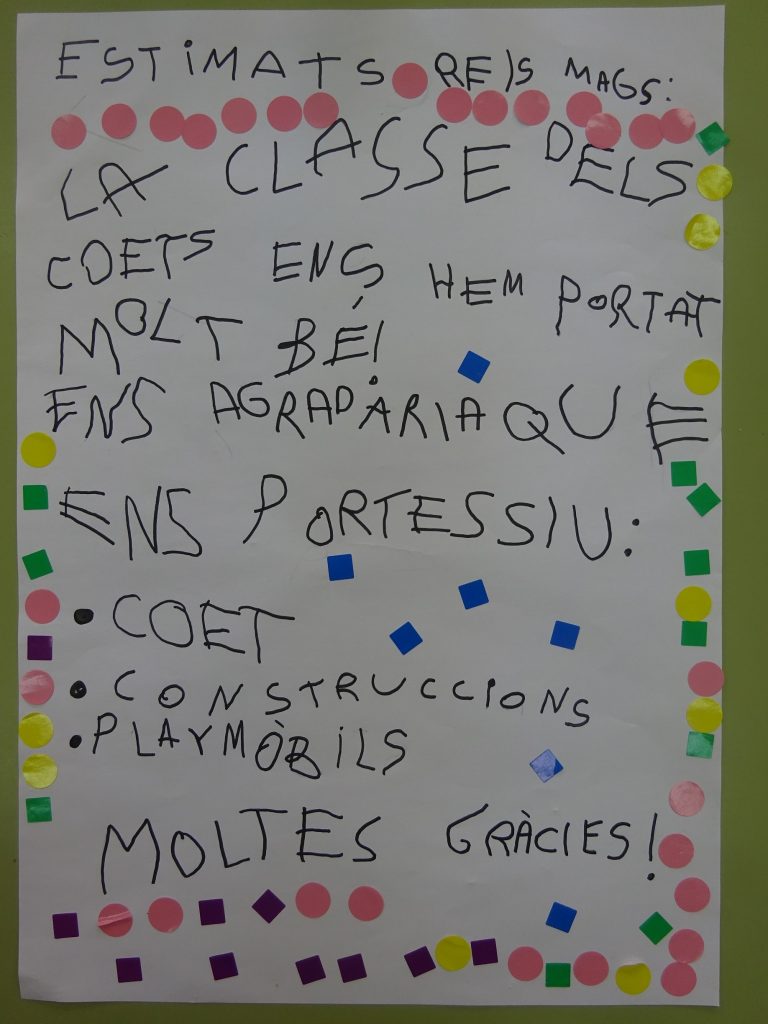 ESTIMATS REIS MAGS:
LA CLASSE DELS
COETS ENS HEM PORTAT
MOLT BÉ I
ENS AGRADARIA QUE
ENS PORTESSIU:
• COET
• CONSTRUCCIONS
• PLAYMÒBILS
MOLTES GRÀCIES!